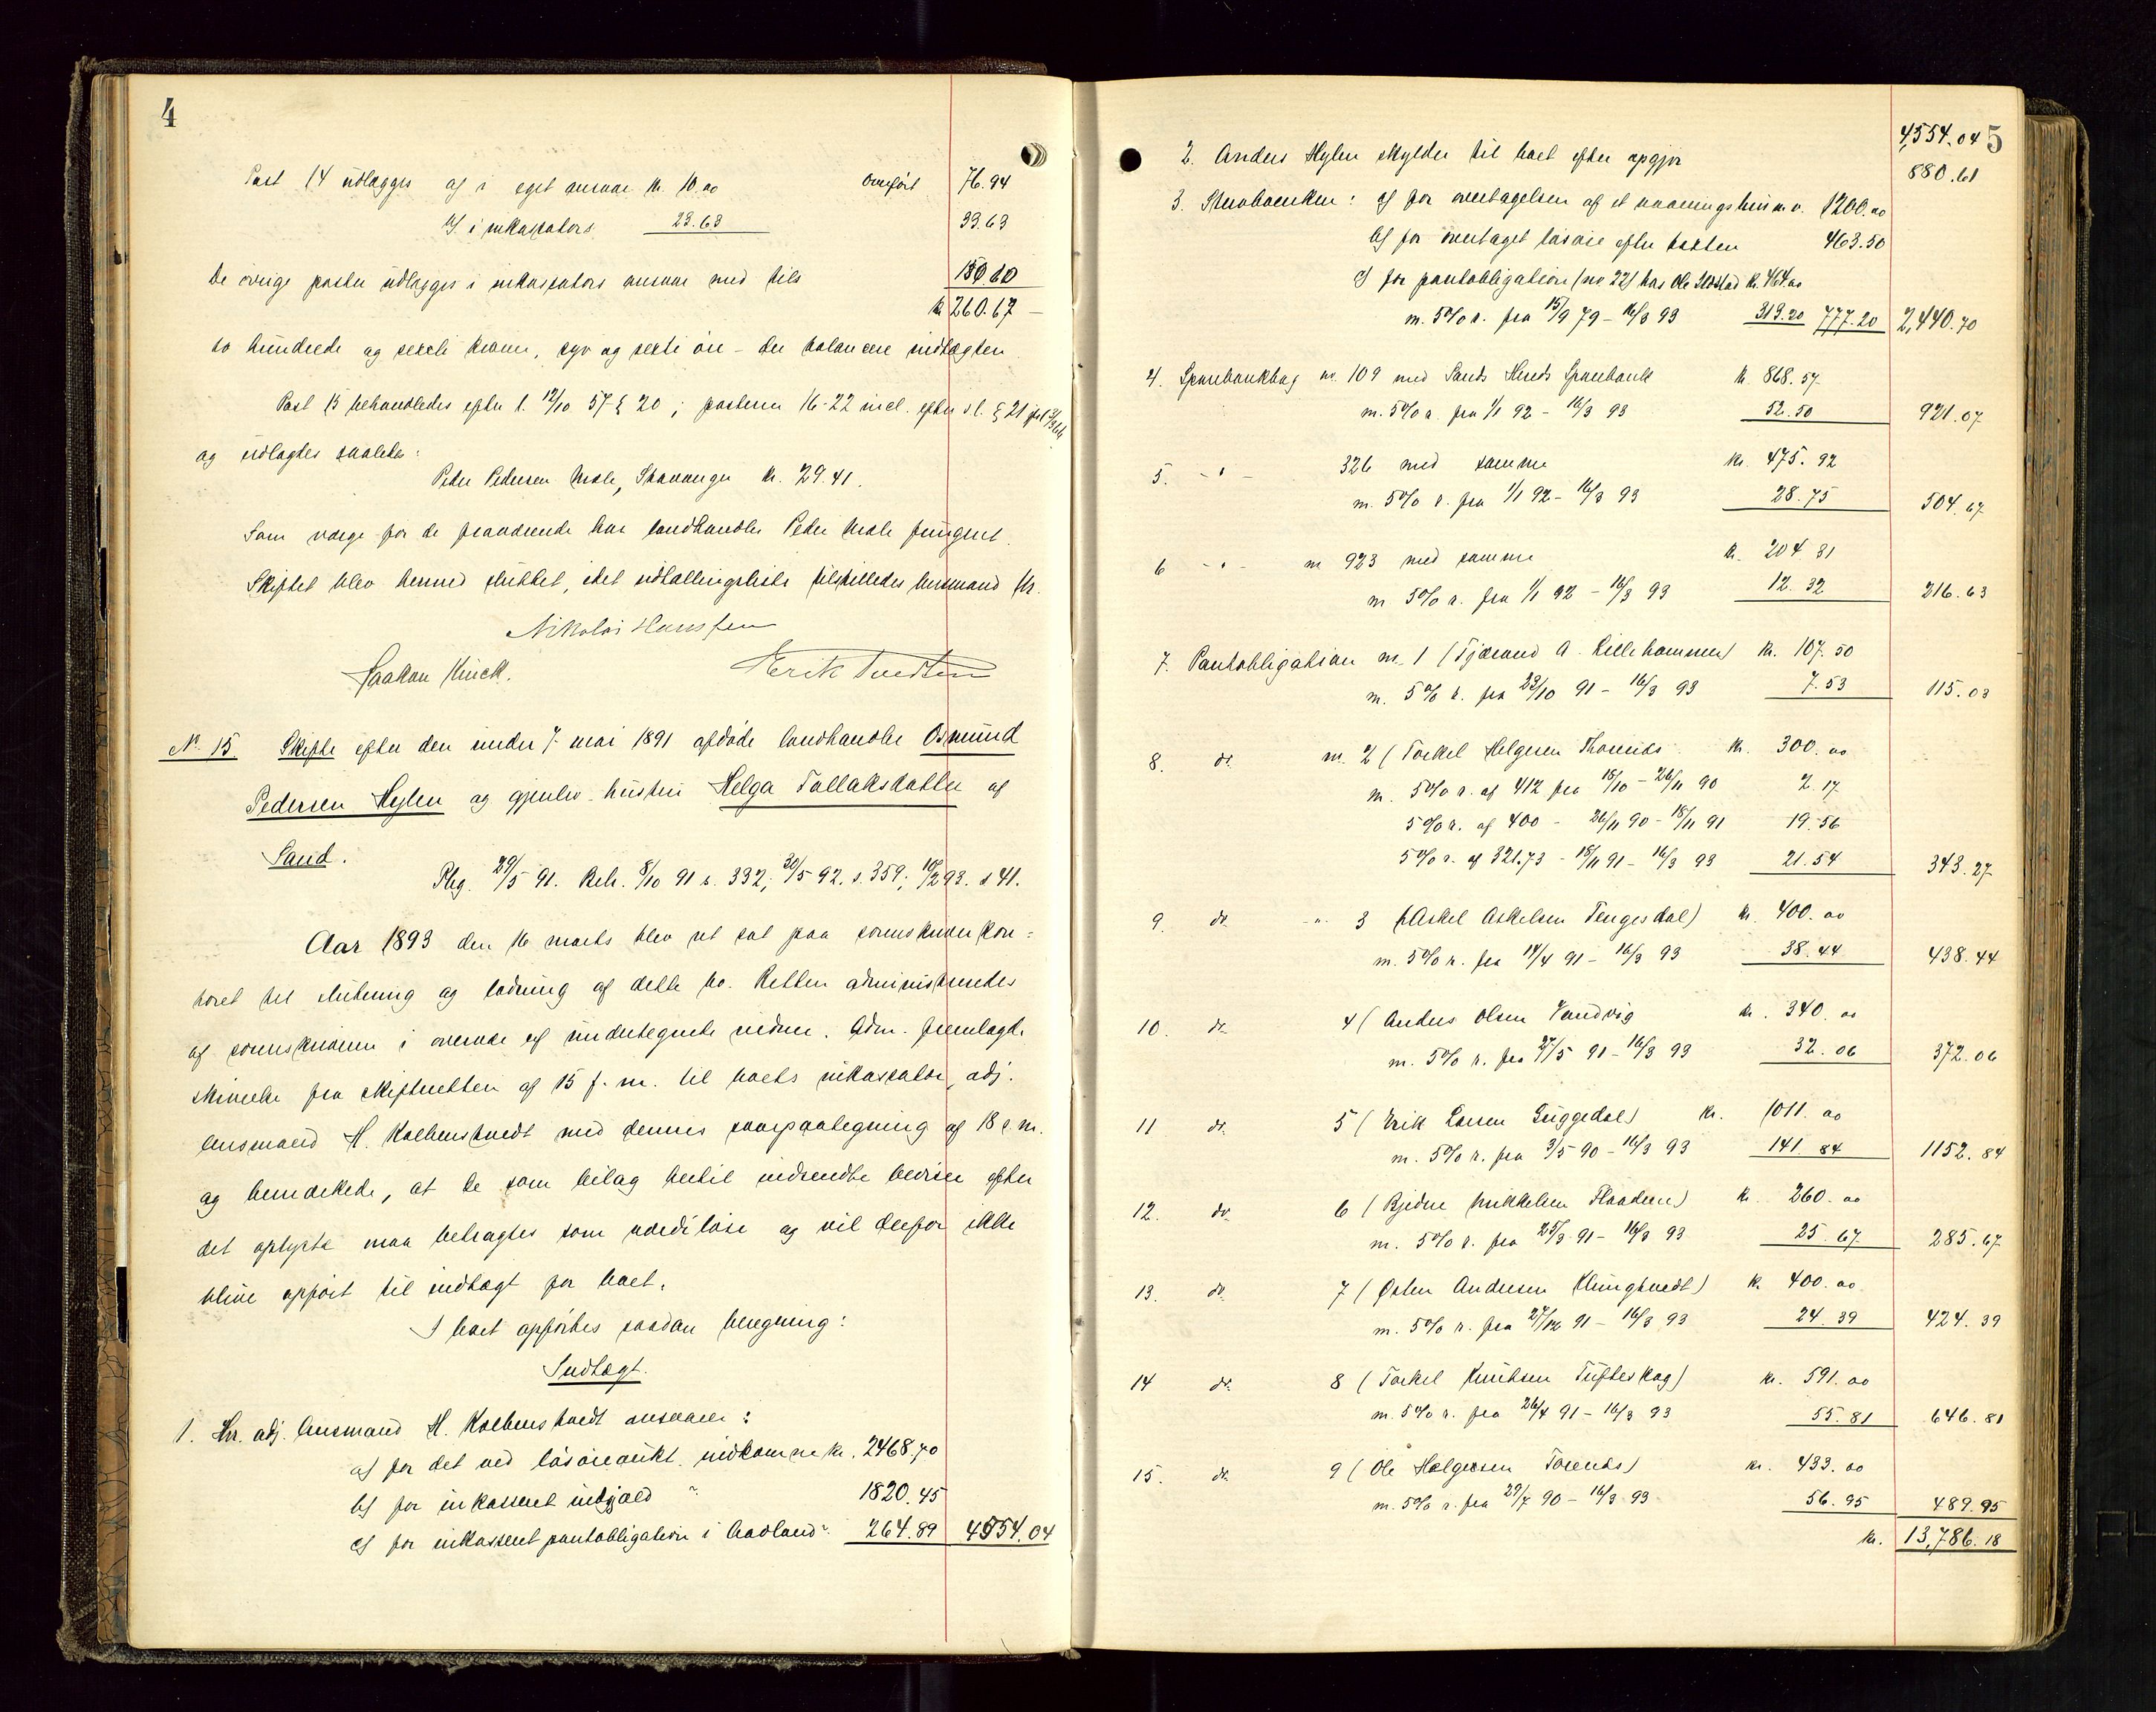 4
Post 14 udlægges a/ i eget ansvar kr. 10.00 Overført 76.94
b/ i inkassators 23.63 33.63
De øvrige poster udlægges i inkassators ansvar med tils 150.10
kr 260.67
to hundrede og sexti kroner, syv og sexti øre – der balancere indtægten.
Post 15 behandledes efter l. 12/10 57 § 20; posterne 16-22 incl. efter s. l. § 21
og udlagtes saaledes:
Peder Pedersen, Stavanger kr. 29.41.
Som værge for de fraværende har landhandler Peder fungeret.
Skiftet blev hermed sluttet, idet udlodningsliste tilstilledes lensmand
Nikolai Hanssen
Haakon Kinck. Erik Tvedten
No. 15. Skifte efter den under 7 mai 1891 afdøde landhandler Osmund
Pedersen Hylen og gjenlev. hustru Helga Tollaksdatter af
Sand.
Reg. 29/5 91. Beh. 8/10 91 s. 332; 30/5 92. s. 359; 10/2 93. s 41.
Aar 1893 den 16 marts blev ret sat paa sorenskriverkon=
toret til slutning og lodning af dette bo. Retten administreredes
af sorenskriveren i overvær af undertegnede vidner. Adm. fremlagde
skrivelse fra skifteretten af 15 f. m. til boets inkassator, adj.
lensmand H. Kolbenstvedt med dennes paategning af 18 s. m.
og bemærkede, at de som bilag hertil indsendte beviser efter
det oplyste maa betragtes som værdiløse og vil derfor ikke
blive opført til indtægt for boet.
I boet opførtes saadan beregning:
Indtægt.
1. Hr. adj. lensmand H. Kolbenstvedt ansvarer:
a/ for det ved løsøreaukt. indkomne kr. 2468.70
b/ for inkasseret indgjæld " 1820.45
c/ for inkasseret pantobligation i Aadland " 264.89 4554.04
5
4,554.04
2. Anders Hylen skylder til boet efter opgjør 880.61
3. Stervboenken: a/ for overtagelsen af et vaaningshus m.v. 1200.00
b/ for overtaget løsøre efter taxten 463.50
c/ for pantobligation (no 22) hos Ole kr. 464.00
m. 5% r. fra 15/9 79 – 16/3 93 313.20 777.20 2,440.70
4. Sparebankbog no. 109 med Sands Herreds Sparebank kr. 868.57
m. 5% r. fra 1/1 92 – 16/3 93 52.50 921.07
5. – " – 326 med samme kr. 475.92
m. 5% r. fra 1/1 92 – 16/3 93 28.75 504.67
6 – " – nr 923 med samme kr. 204 31
m. 5% r. fra 1/1 92 – 16/3 93 12.32 216.63
7. Pantobligation nr. 1 (Tjerand A. Lillehammer) kr. 107.50
m. 5% r. fra 23/10 91 – 16/3 93 7.53 115.03
8. do. nr. 2 (Torkel Helgesen Thorsnes kr. 300.00
m. 5% r. af 412 fra 18/10 – 26/11 90 2.17
5% r. af 400 – 26/11 90 – 18/11 91 19.56
5% r. af 321.73 – 18/11 91 – 16/3 93 21.54 343.27
9. do. – " – 3 (Askel Askelsen Tengesdal) kr. 400.00
m. 5% r. fra 14/4 91 – 16/3 93 38.44 438.44
10. do. 4 (Anders Olsen Vandvig kr. 340.00
m. 5% r. fra 27/5 91 – 16/3 93 32.06 372.06
11 do. 5 (Erik Larsen Guggedal) kr. 1011.00
m. 5% r. fra 3/5 90 – 16/3 93 141 84 1152.84
12. do. 6 (Bjedne Mikkelsen Flaaderen) kr. 260.00
m. 5% r. fra 25/3 91 – 16/3 93 25.67 285.67
13. do. 7 (Østen Andersen Klungtvedt) kr. 400.00
m. 5% r. fra 27/12 91 – 16/3 93 24.39 424.39
14 do. 8 (Torkel Knutsen Tufteskog) kr. 591.00
m. 5% r. fra 26/4 91 – 16/3 93 55.81 646.81
15. do. 9 (Ole Helgesen Torsnes) kr. 433.00
m. 5% r. fra 29/7 90 – 16/3 93 56.95 489.95
kr. 13,786.18